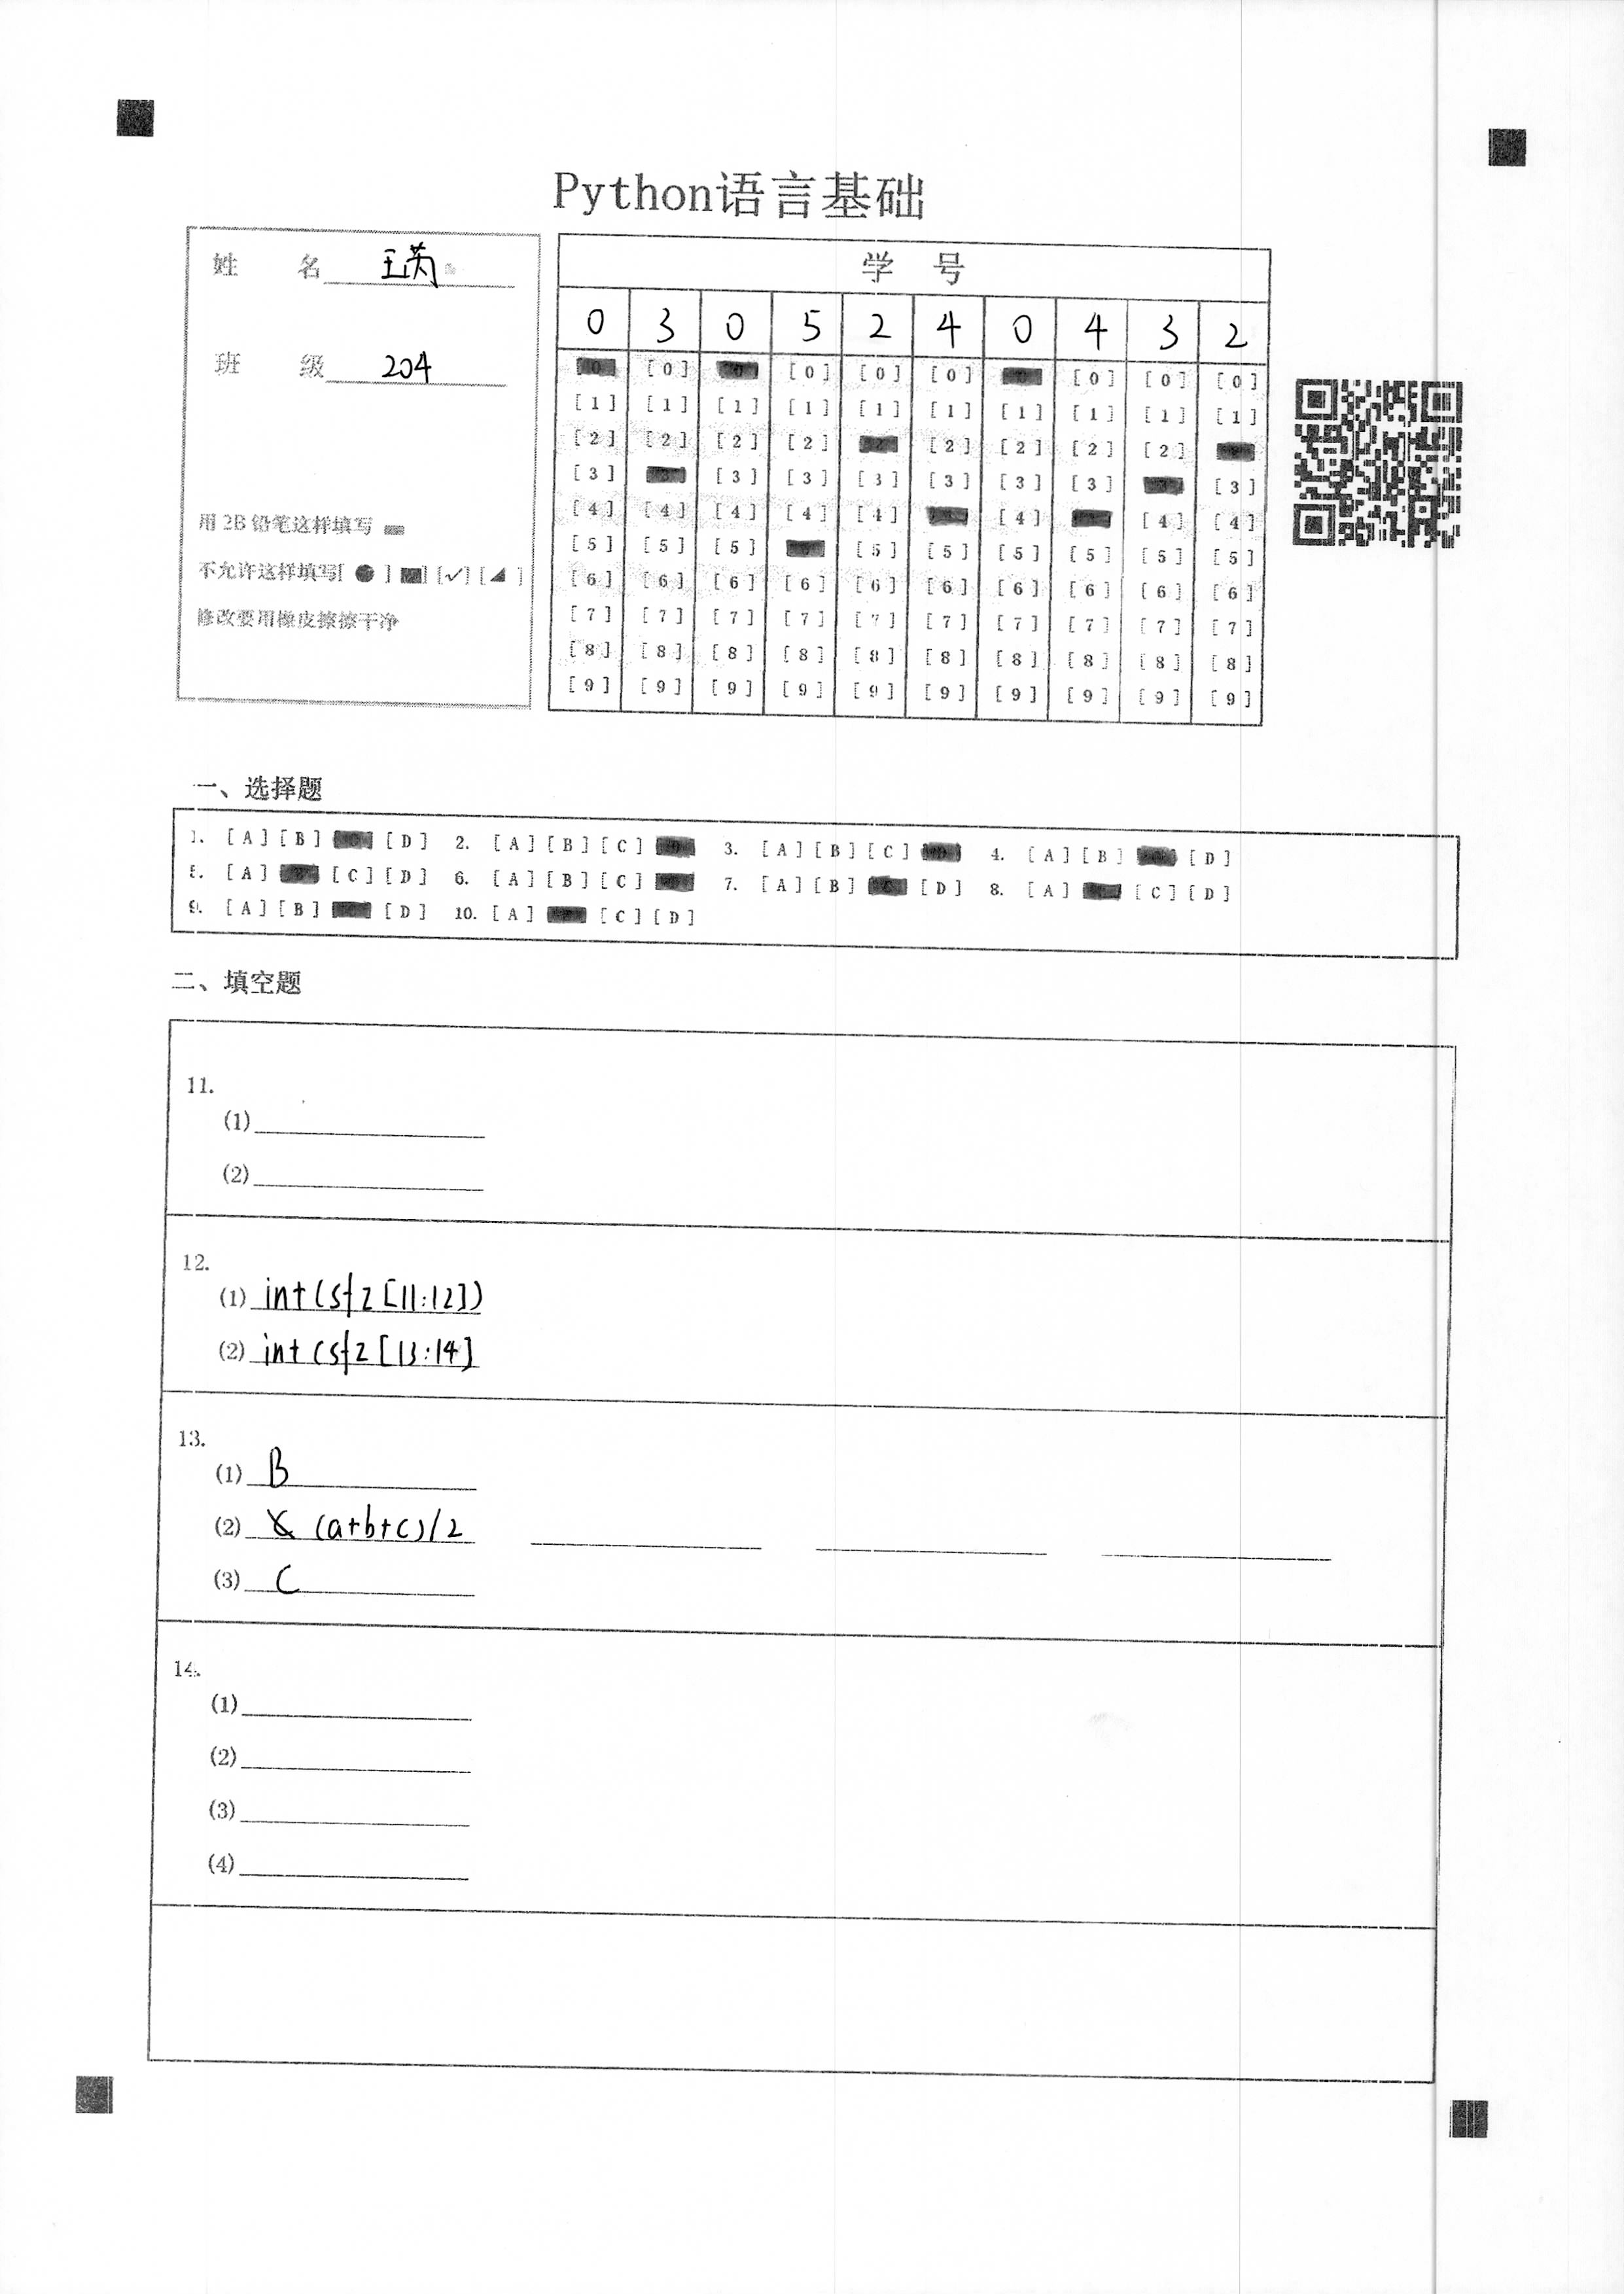 Python语言基础
姓 名 王芮
班 级 204
用 2B 铅笔这样填写
不允许这样填写[ ● ] [■] [✓] [◢ ]
修改要用橡皮擦擦干净
学 号
0 3 0 5 2 4 0 4 3 2
[0] [0] [0] [0] [0] [0] [0] [0] [0] [0]
[1] [1] [1] [1] [1] [1] [1] [1] [1] [1]
[2] [2] [2] [2] [2] [2] [2] [2]
[3] [3] [3] [3] [3] [3] [3] [3]
[4] [4] [4] [4] [4] [4] [4] [4]
[5] [5] [5] [5] [5] [5] [5] [5] [5]
[6] [6] [6] [6] [6] [6] [6] [6] [6] [6]
[7] [7] [7] [7] [7] [7] [7] [7] [7] [7]
[8] [8] [8] [8] [8] [8] [8] [8] [8] [8]
[9] [9] [9] [9] [9] [9] [9] [9] [9] [9]
一、选择题
1. [A] [B] [D] 2. [A] [B] [C] 3. [A] [B] [C] 4. [A] [B] [D]
5. [A] [C] [D] 6. [A] [B] [C] 7. [A] [B] [D] 8. [A] [C] [D]
9. [A] [B] [D] 10. [A] [C] [D]
二、填空题
11.
(1)
(2)
12.
(1) int(sfz[11:12])
(2) int(sfz[13:14]
13.
(1) B
(2) (a+b+c)/2
(3) C
14.
(1)
(2)
(3)
(4)